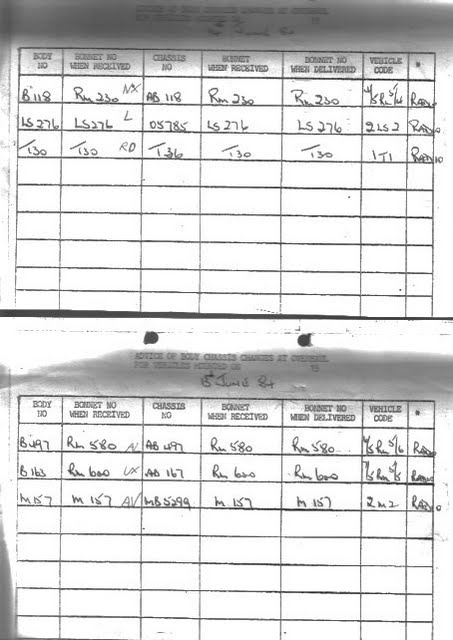 ADVICE OF BODY CHASSIS CHANGES AT OVERHAUL
FOR VEHICLES 19
June 84
BODY NO BONNET NO WHEN RECEIVED CHASSIS NO BONNET WHEN RECEIVED BONNET NO WHEN DELIVERED VEHICLE CODE *
B118 Rm 230 NX AB 118 Rm 230 Rm 230 RADIO
LS 276 LS276 L 05785 LS 276 LS 276 2LS2 RADIO
T130 T130 RD T 136 T130 T130 1T1 RADIO
ADVICE OF BODY CHASSIS CHANGES AT OVERHAUL
FOR VEHICLES 19
15 JUNE 84
BODY NO BONNET NO WHEN RECEIVED CHASSIS NO BONNET WHEN RECEIVED BONNET NO WHEN DELIVERED VEHICLE CODE *
B497 Rm 580 AB 497 Rm 580 Rm 580 RADIO
B163 Rm 600 UX AB 167 Rm 600 Rm 600 RADIO
M157 M 157 AV MB5299 M 157 M 157 2M2 RADIO